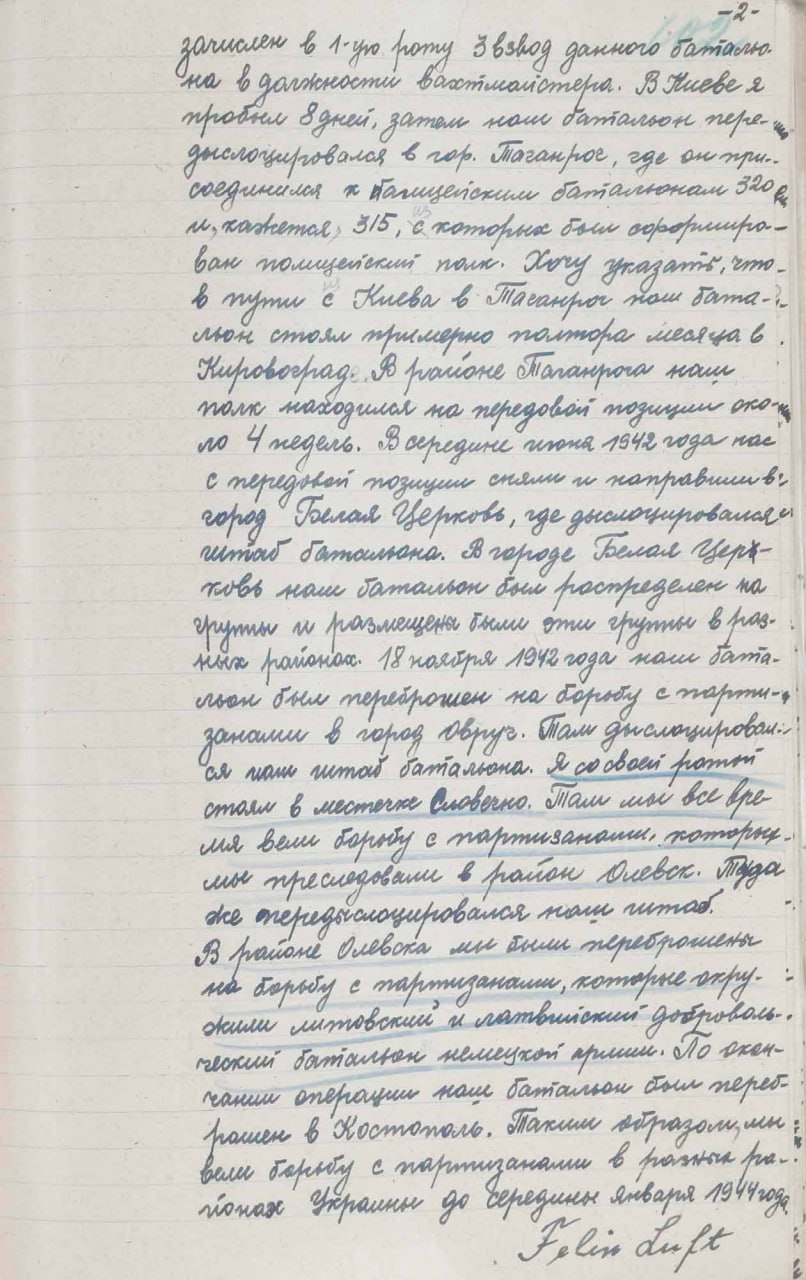 -2-
зачислен в 1-ую роту 3 взвод данного баталью-
на в должности вахтмайстера. В Киеве я
пробыл 8 дней, затем наш батальон пере-
дыслоцировался в гор. Таганрог, где он при-
соединился к палицейским батальонам 320
и, кажется, 315, с которых был сформиро-
ван полицейский полк. Хочу указать, что
в пути с Киева в Таганрог наш бата-
льон стоял примерно полтора месяца в
Кировоград. В районе Таганрога наш
полк находился на передовой позиции око-
ло 4 недель. В середине июня 1942 года нас
с передовой позиции сняли и направили в
город Белая Церковь, где дыслоцировался
штаб батальона. В городе Белая Цер-
ковь наш батальон был распределен на
группы и размещены были эти группы в раз-
ных районах. 18 ноября 1942 года наш бата-
льон был переброшен на борьбу с парти-
занами в город Овруч. Там дыслоцировал-
ся наш штаб батальона. Я со своей ротой
стоял в местечке Словечно. Там мы все вре-
мя вели борьбу с партизанами, которых
мы преследовали в район Олевск. Туда
же передыслоцировался наш штаб.
В районе Олевска мы были переброшены
на борьбу с партизанами, которые окру-
жили литовский и латвийский доброволь-
ческий батальон немецкой армии. По окон-
чании операции наш батальон был переб-
рошен в Костополь. Таким образом, мы
вели борьбу с партизанами в разных ра-
йонах Украины до середины января 1944 года.
Felix Luft